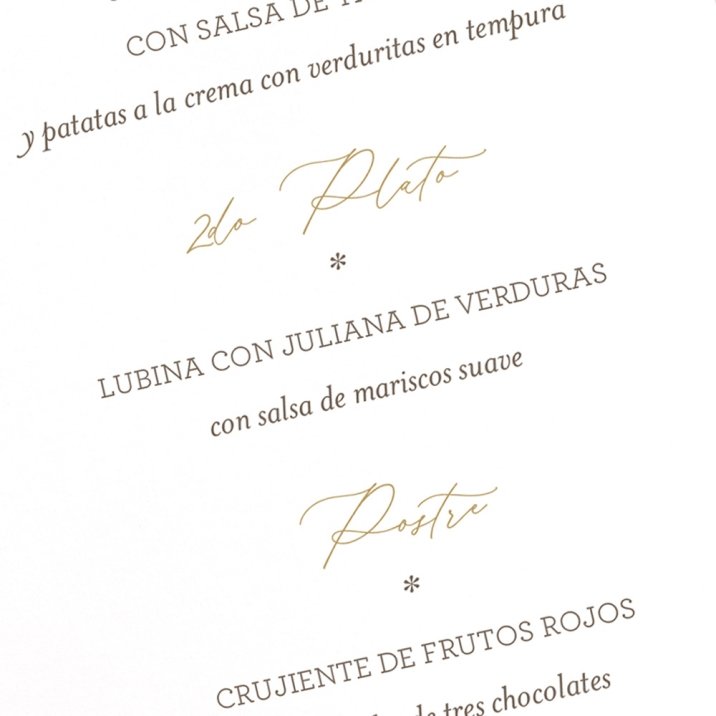 CON SALSA DE
y patatas a la crema con verduritas en tempura
2do Plato
*
LUBINA CON JULIANA DE VERDURAS
con salsa de mariscos suave
Postre
*
CRUJIENTE DE FRUTOS ROJOS
de tres chocolates